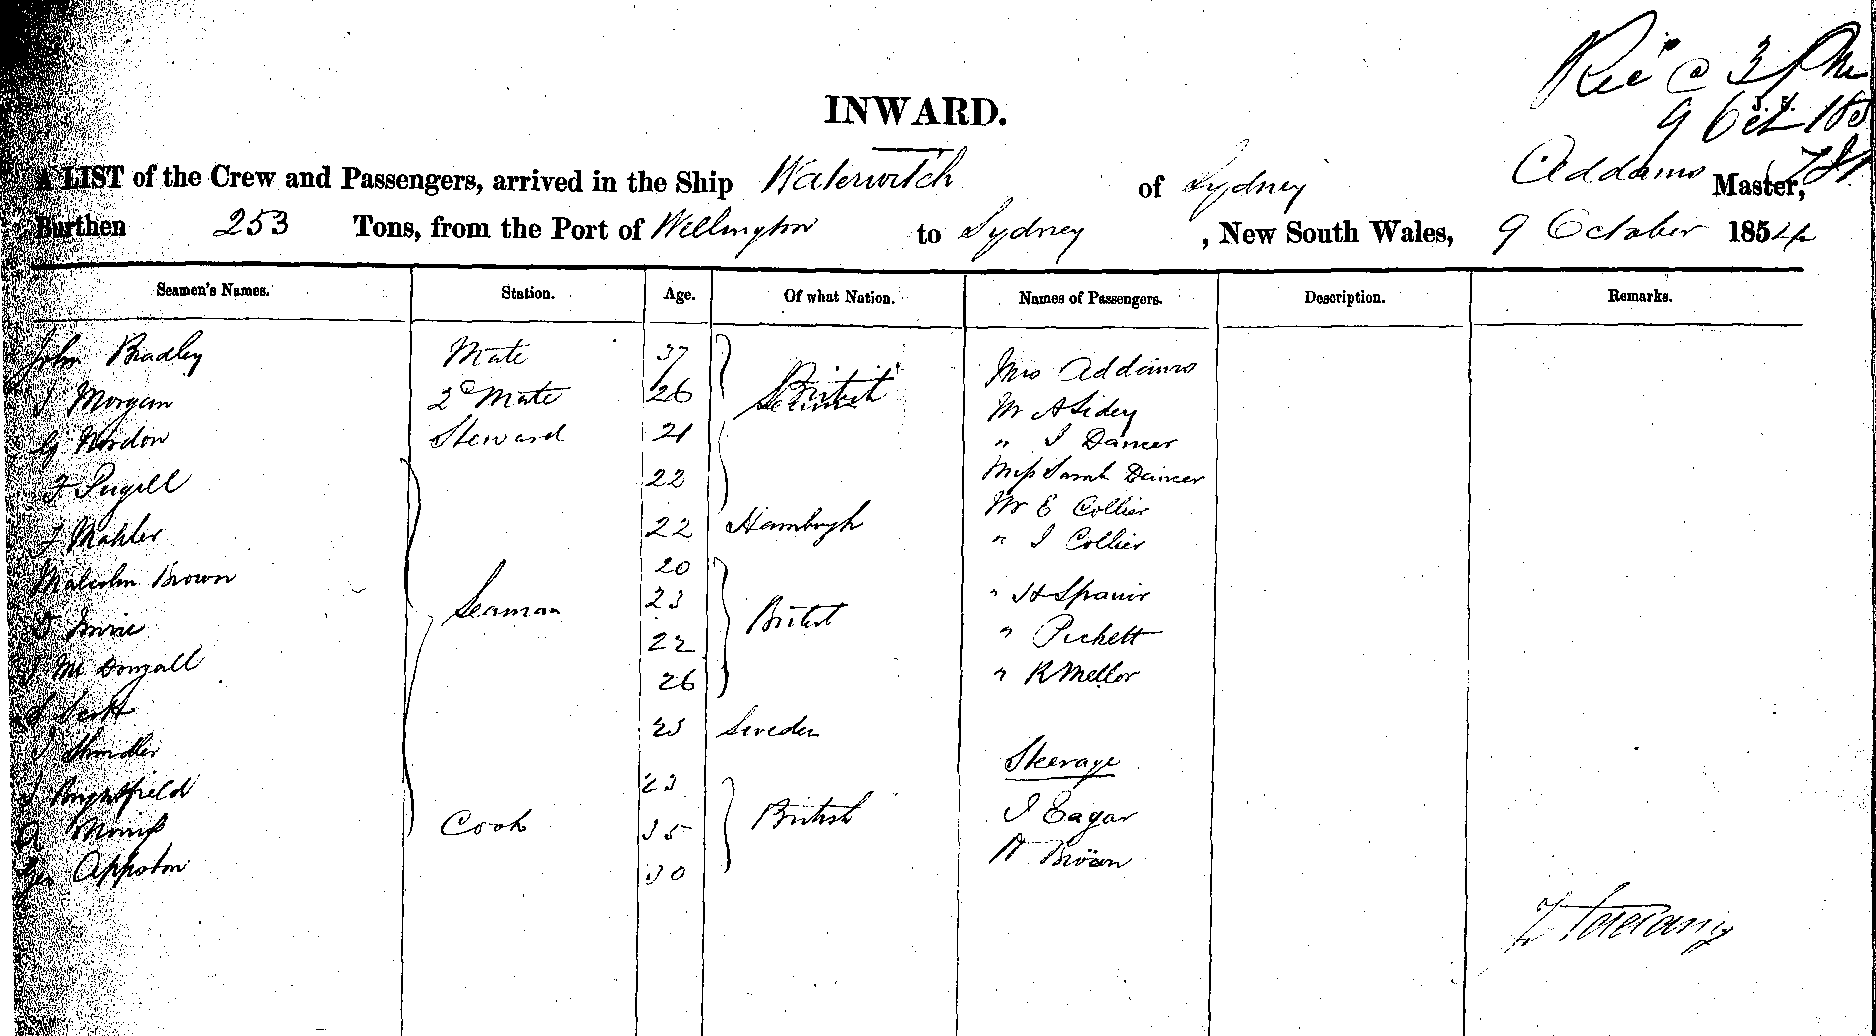 Rec'd @ 3 PM
9 Oct 185
INWARD.
A LIST of the Crew and Passengers, arrived in the Ship Waterwitch of Sydney Addams Master,
Burthen 253 Tons, from the Port of Wellington to Sydney , New South Wales, 9 October 1854
Seamen's Names. Station. Age. Of what Nation. Names of Passengers. Description. Remarks.
John Bradley Mate 37 British Mrs Addams
Morgan 2d Mate 26 Mr A Sidey
Steward 21 " J Dancer
22 Miss Sarah Dancer
Mr E Collier
Mahler 22 Hamburgh " J Collier
Malcolm Brown 20
Seaman 23 British " H Spanir
Imrie 22 " Pickett
Mc Dougall 26 " R Mellor
25 Sweden
Steerage
Brightfield 23
Cook 35 British J Eagar
Appoton 30 Brown